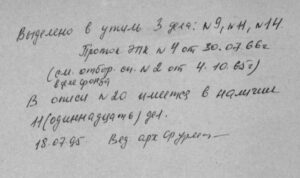 Выделено в утиль 3 дела: №9, №11, №14.
Проток ЭПК №4 от 30.07.66г
(см. отбор. сп. №2 от 4.10.65г)
в деле фонда
В описи №20 имеется в наличии
11 (одиннадцать) дел.
18.07.95 Вед. арх